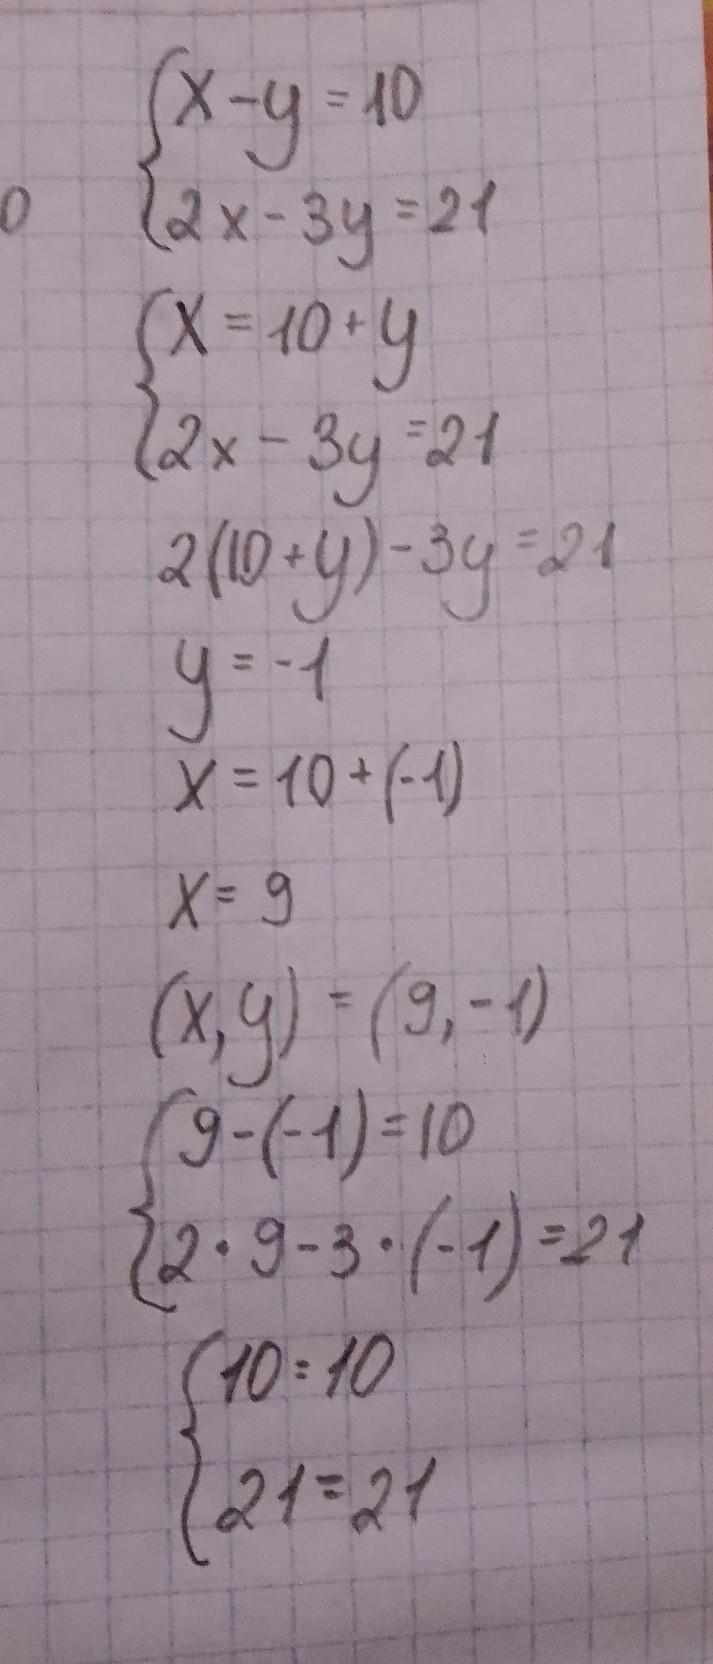 {x-y=10
0 {2x-3y=21
{x=10+y
{2x-3y=21
2(10+y)-3y=21
y=-1
x=10+(-1)
x=9
(x,y)=(9,-1)
{9-(-1)=10
{2·9-3·(-1)=21
{10=10
{21=21